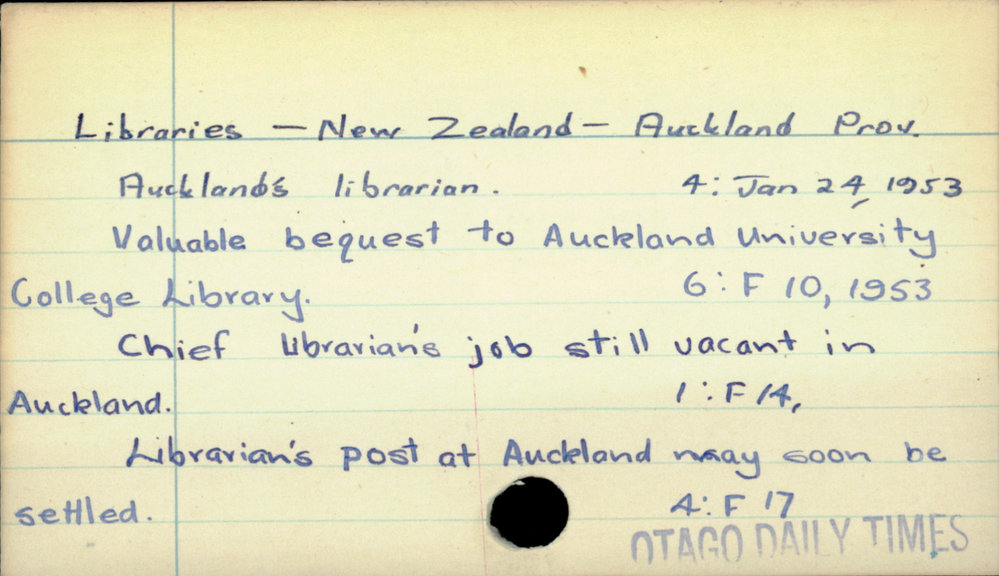 Libraries — New Zealand — Auckland Prov.
Auckland's librarian. 4: Jan 24, 1953
Valuable bequest to Auckland University
College Library. 6: F 10, 1953
Chief librarian's job still vacant in
Auckland. 1: F 14,
Librarian's post at Auckland may soon be
settled. 4: F 17
OTAGO DAILY TIMES